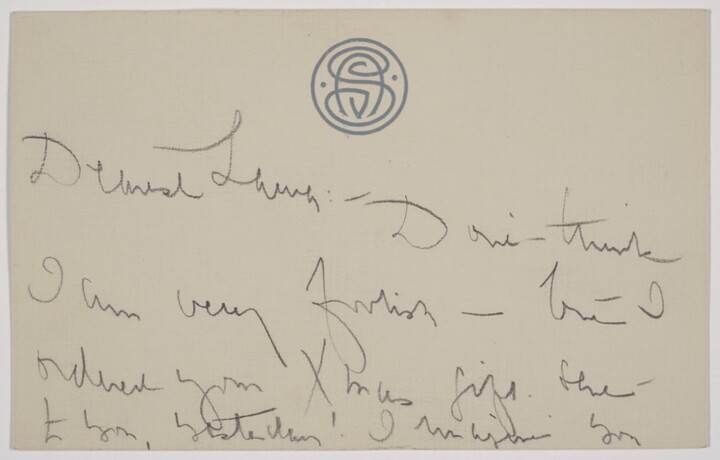 Dearest Laura:— Don't think
I am very foolish — but I
ordered your Xmas gift sent
to you, yesterday! I imagine you